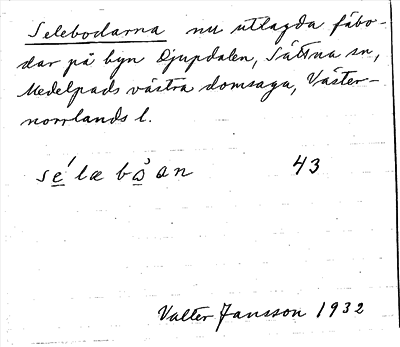 Selebodarna nu utlagda fäbo-
dar på byn Djupdalen, Sättna sn,
Medelpads västra domsaga, Väster-
norrlands l.
se´læ bån 43
Valter Jansson 1932